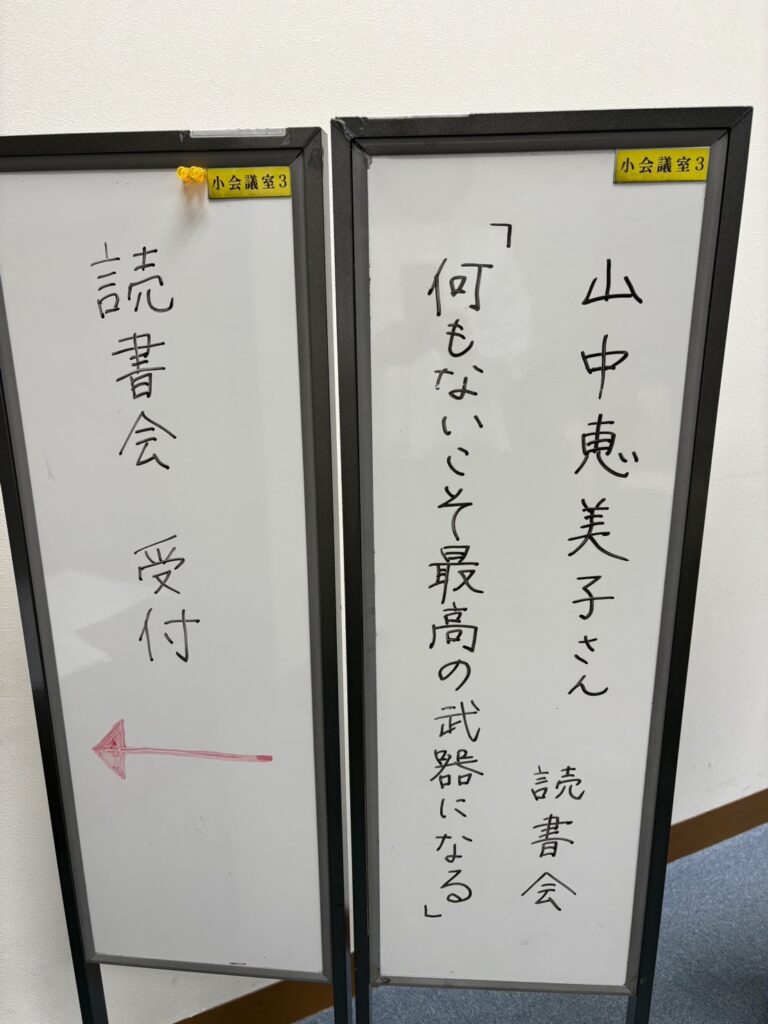 小会議室3
山中恵美子さん
読書会
「何もないこそ最高の武器になる」
小会議室3
読書会 受付